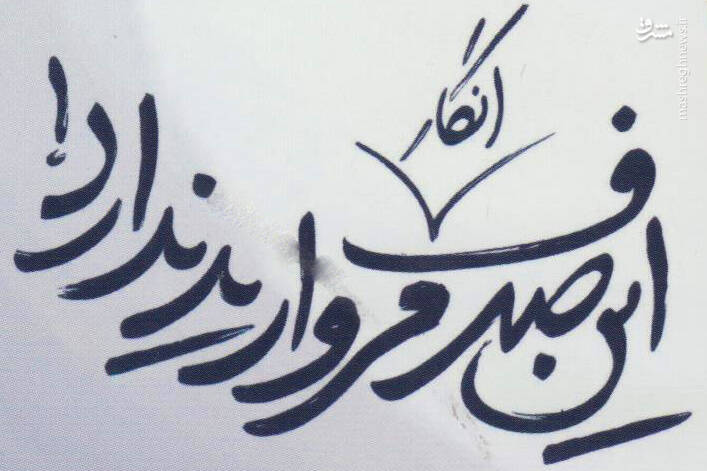 انگار
این صدف مروارید ندارد!
مشرق
mashreghnews.ir